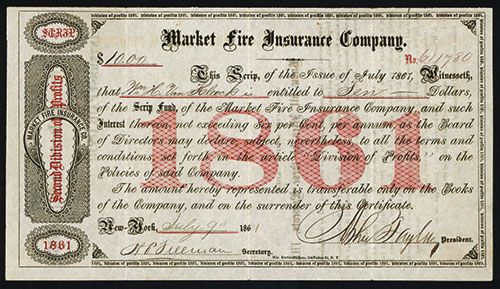 Division of profits 1861. Division of profits 1861. Division of profits 1861. Division of profits 1861.
SCRIP
Market Fire Insurance Company.
$10.00 No.
This Scrip, of the Issue of July 1861, Witnesseth,
that Wm H. Van is entitled to Ten Dollars,
of the Scrip Fund, of the Market Fire Insurance Company, and such
Interest therein, not exceeding Six per Cent, per annum, as the Board
of Directors may declare, subject, nevertheless, to all the terms and
conditions, set forth in the article "Division of Profits" on the
Policies of said Company.
The amount hereby represented is transferable only on the Books
of the Company, and on the surrender of this Certificate.
New-York, July 9 1861
Secretary.
President.
1861
MARKET FIRE INSURANCE CO.
Second Division of Profits
1861